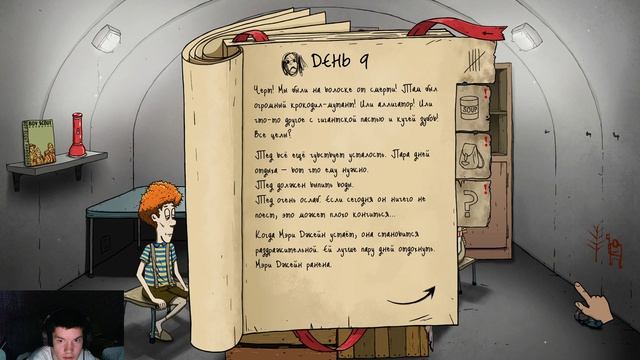 ДЕНЬ 9
Черт! Мы были на волоске от смерти! Там был
огромный крокодил-мутант! Или аллигатор! Или
что-то другое с гигантской пастью и кучей зубов!
Все целы?
Тед всё ещё чувствует усталость. Пара дней
отдыха – вот что ему нужно.
Тед должен выпить воды.
Тед очень ослаб. Если сегодня он ничего не
поест, это может плохо кончиться...
Когда Мэри Джейн устаёт, она становится
раздражительной. Ей лучше пару дней отдохнуть.
Мэри Джейн ранена.
SOUP
!
!
?
!
BOY SCOUT